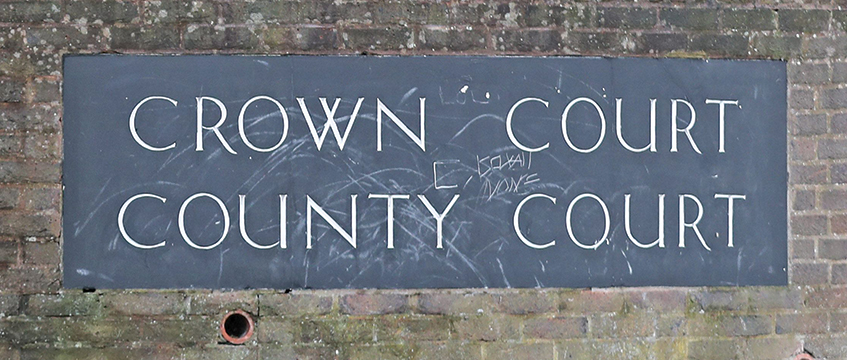 CROWN COURT
COUNTY COURT